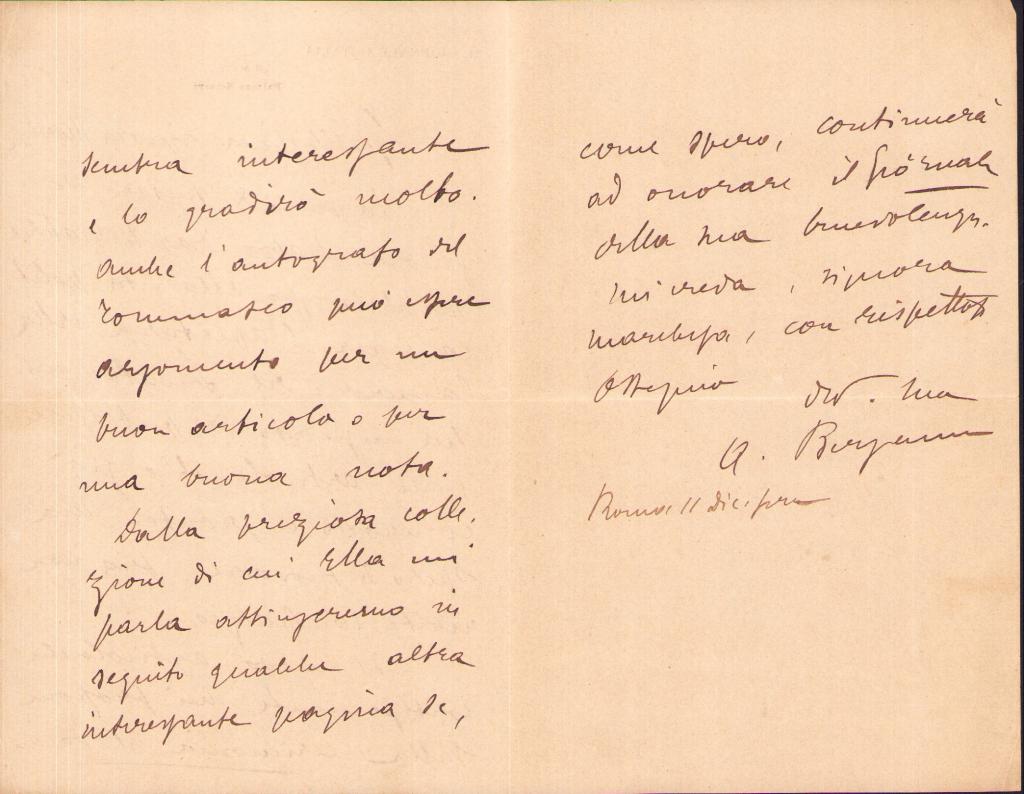 sembra interessante
e lo gradirò molto.
Anche l'autografo del
Tommaseo può essere
argomento per un
buon articolo o per
una buona nota.
Dalla preziosa colle-
zione di cui Ella mi
parla attingeremo in
seguito qualche altra
interessante pagina se,
come spero, continuerà
ad onorare il Giornale
della sua benevolenza.
Mi creda, signora
marchesa, con rispettoso
ossequio
dev. suo
A. Bergamini
Roma 11 dic.